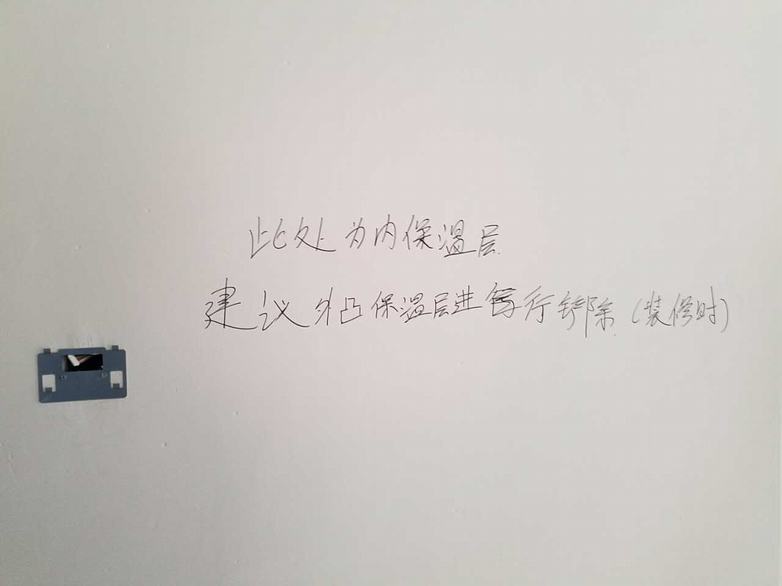 此处为内保温层
建议外凸保温层进行铲除（装修时）